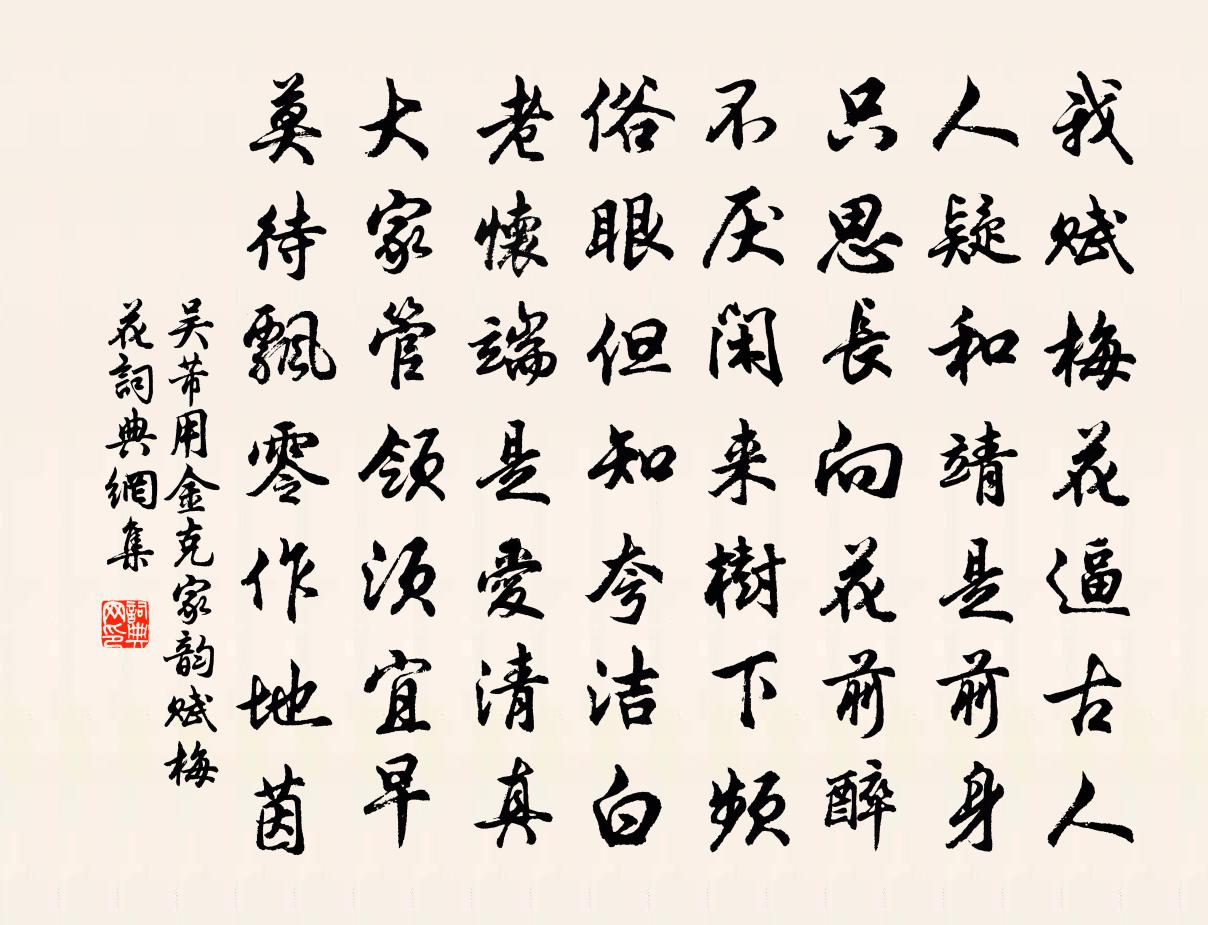 我赋梅花逼古人
人疑和靖是前身
只思長向花前醉
不厌闲来樹下频
俗眼但知夸洁白
老懷端是愛清真
大家管领须宜早
莫待飄零作地茵
吴芾用金克家韵赋梅
花詞典網集
詞典网印